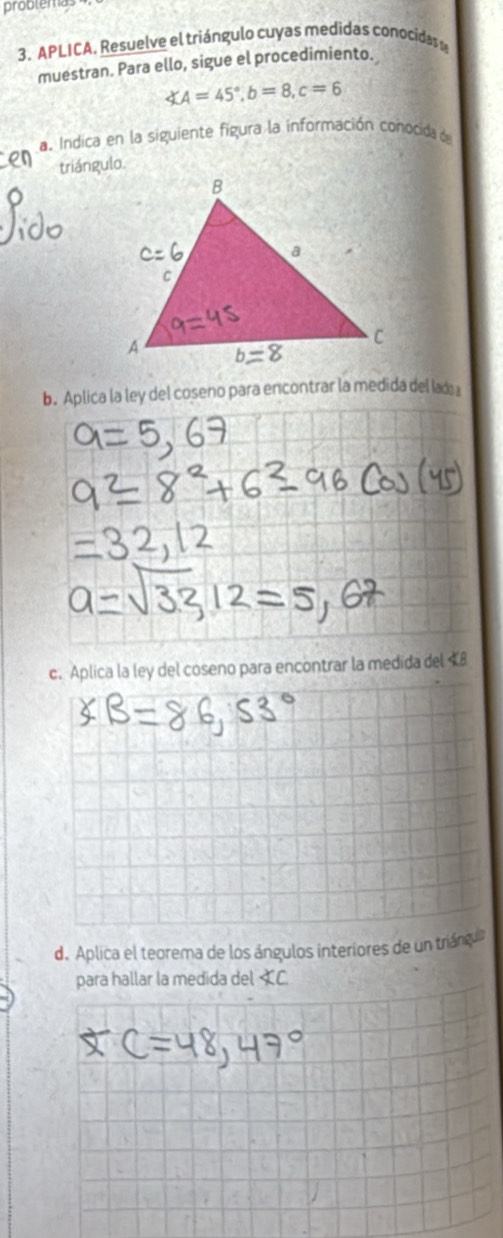 problemas
3. APLICA. Resuelve el triángulo cuyas medidas conocidas se
muestran. Para ello, sigue el procedimiento.
∢A = 45°, b = 8, c = 6
a. Indica en la siguiente figura la información conocida de
triángulo.
cen
Pido
B
c=6
a
c
a=45
A
C
b=8
b. Aplica la ley del coseno para encontrar la medida del lado a
a=5,67
a²=8²+6²-96 Cos(45)
=32,12
a=√32,12=5,67
c. Aplica la ley del coseno para encontrar la medida del ∢B
∢B=86,53°
d. Aplica el teorema de los ángulos interiores de un triángulo
para hallar la medida del ∢C.
∢C=48,47°